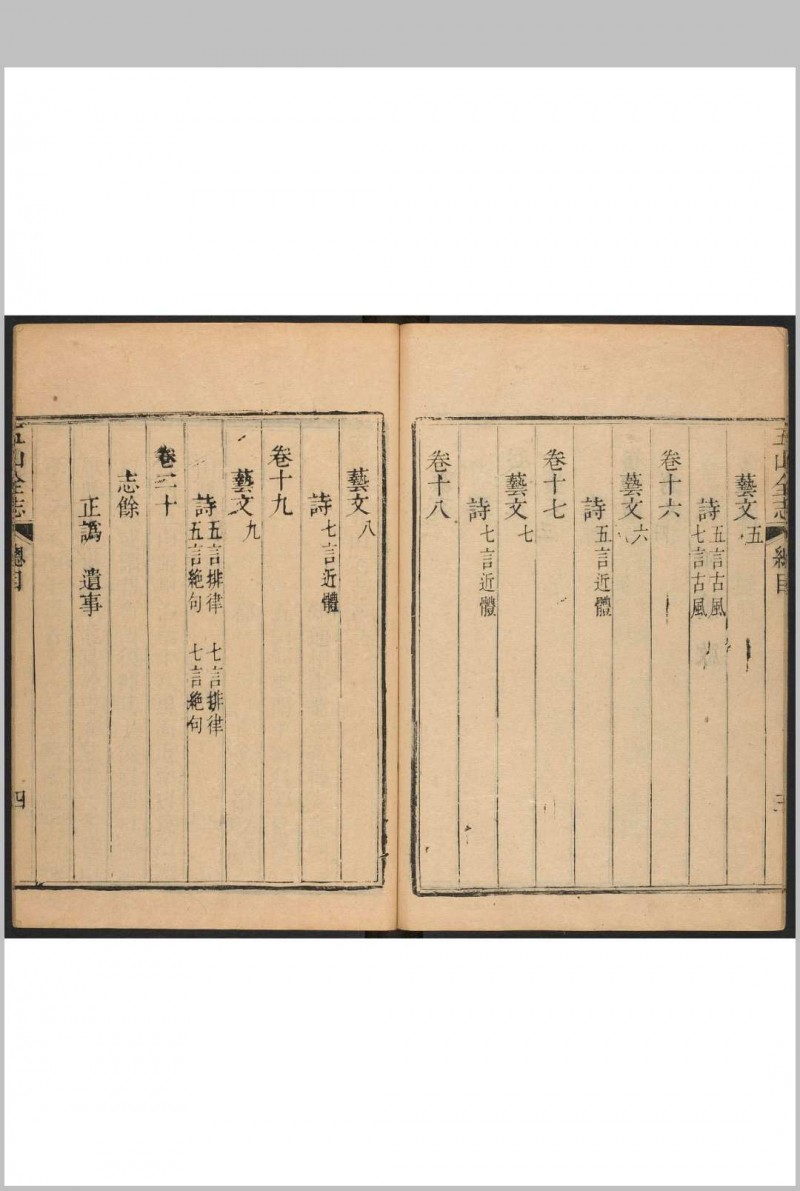 五山全志 總目 三
藝文五
詩 五言古風 七言古風
卷十六
藝文六
詩 五言近體
卷十七
藝文七
詩 七言近體
卷十八
藝文八
詩 七言近體
卷十九
藝文九
詩 五言排律 七言排律 五言絶句 七言絶句
卷二十
志餘
正譌 遺事
五山全志 總目 四